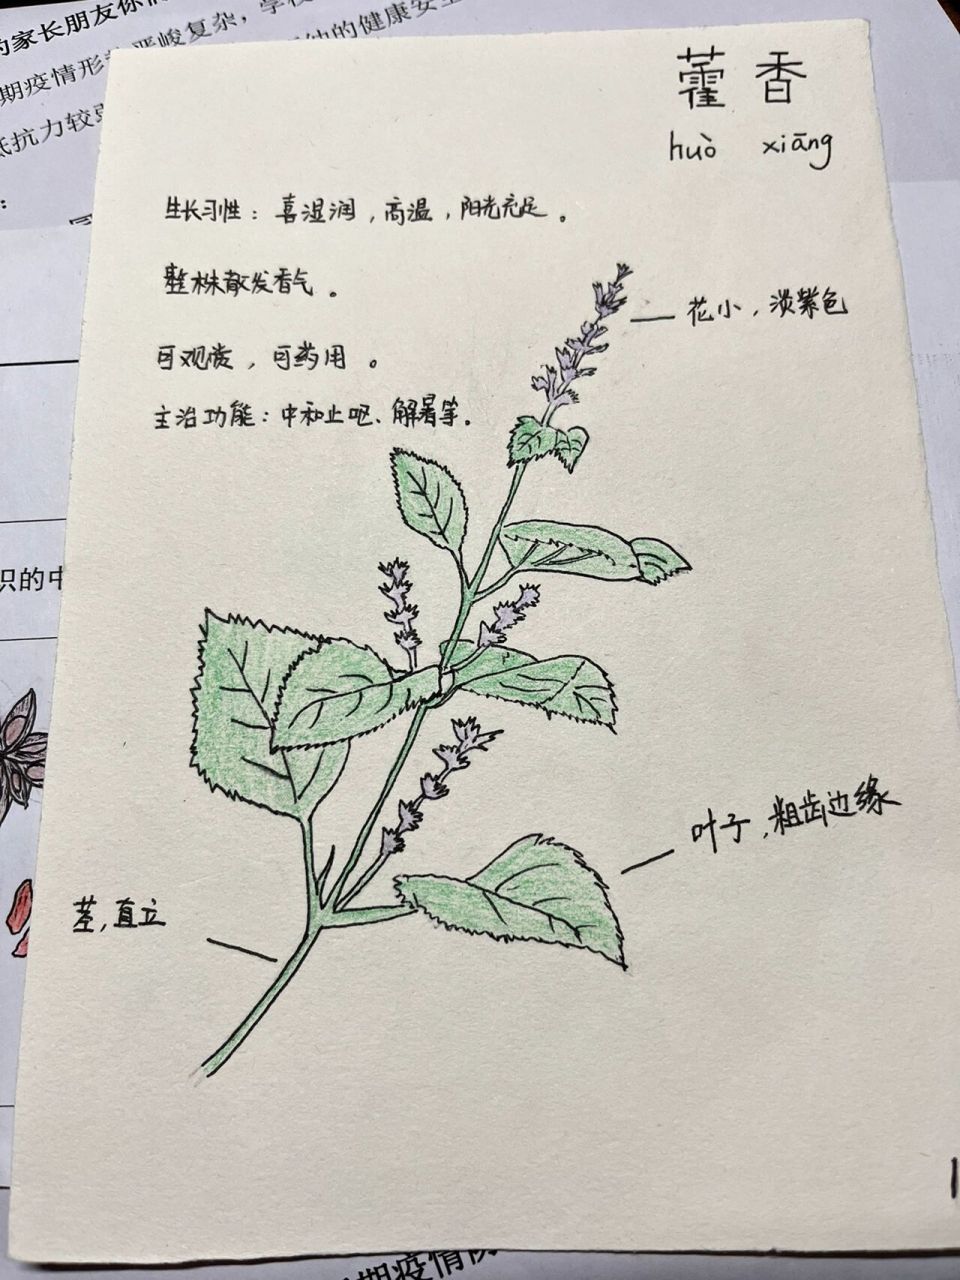 的家长朋友
期疫情形势严峻复杂，学校
的健康安全
抵抗力较弱
：
藿香
huò xiāng
生长习性：喜湿润，高温，阳光充足。
整株散发香气。
花小，淡紫色
可观赏，可药用。
主治功能：中和止呕、解暑等。
识的中
叶子，粗齿边缘
茎，直立
期疫情防